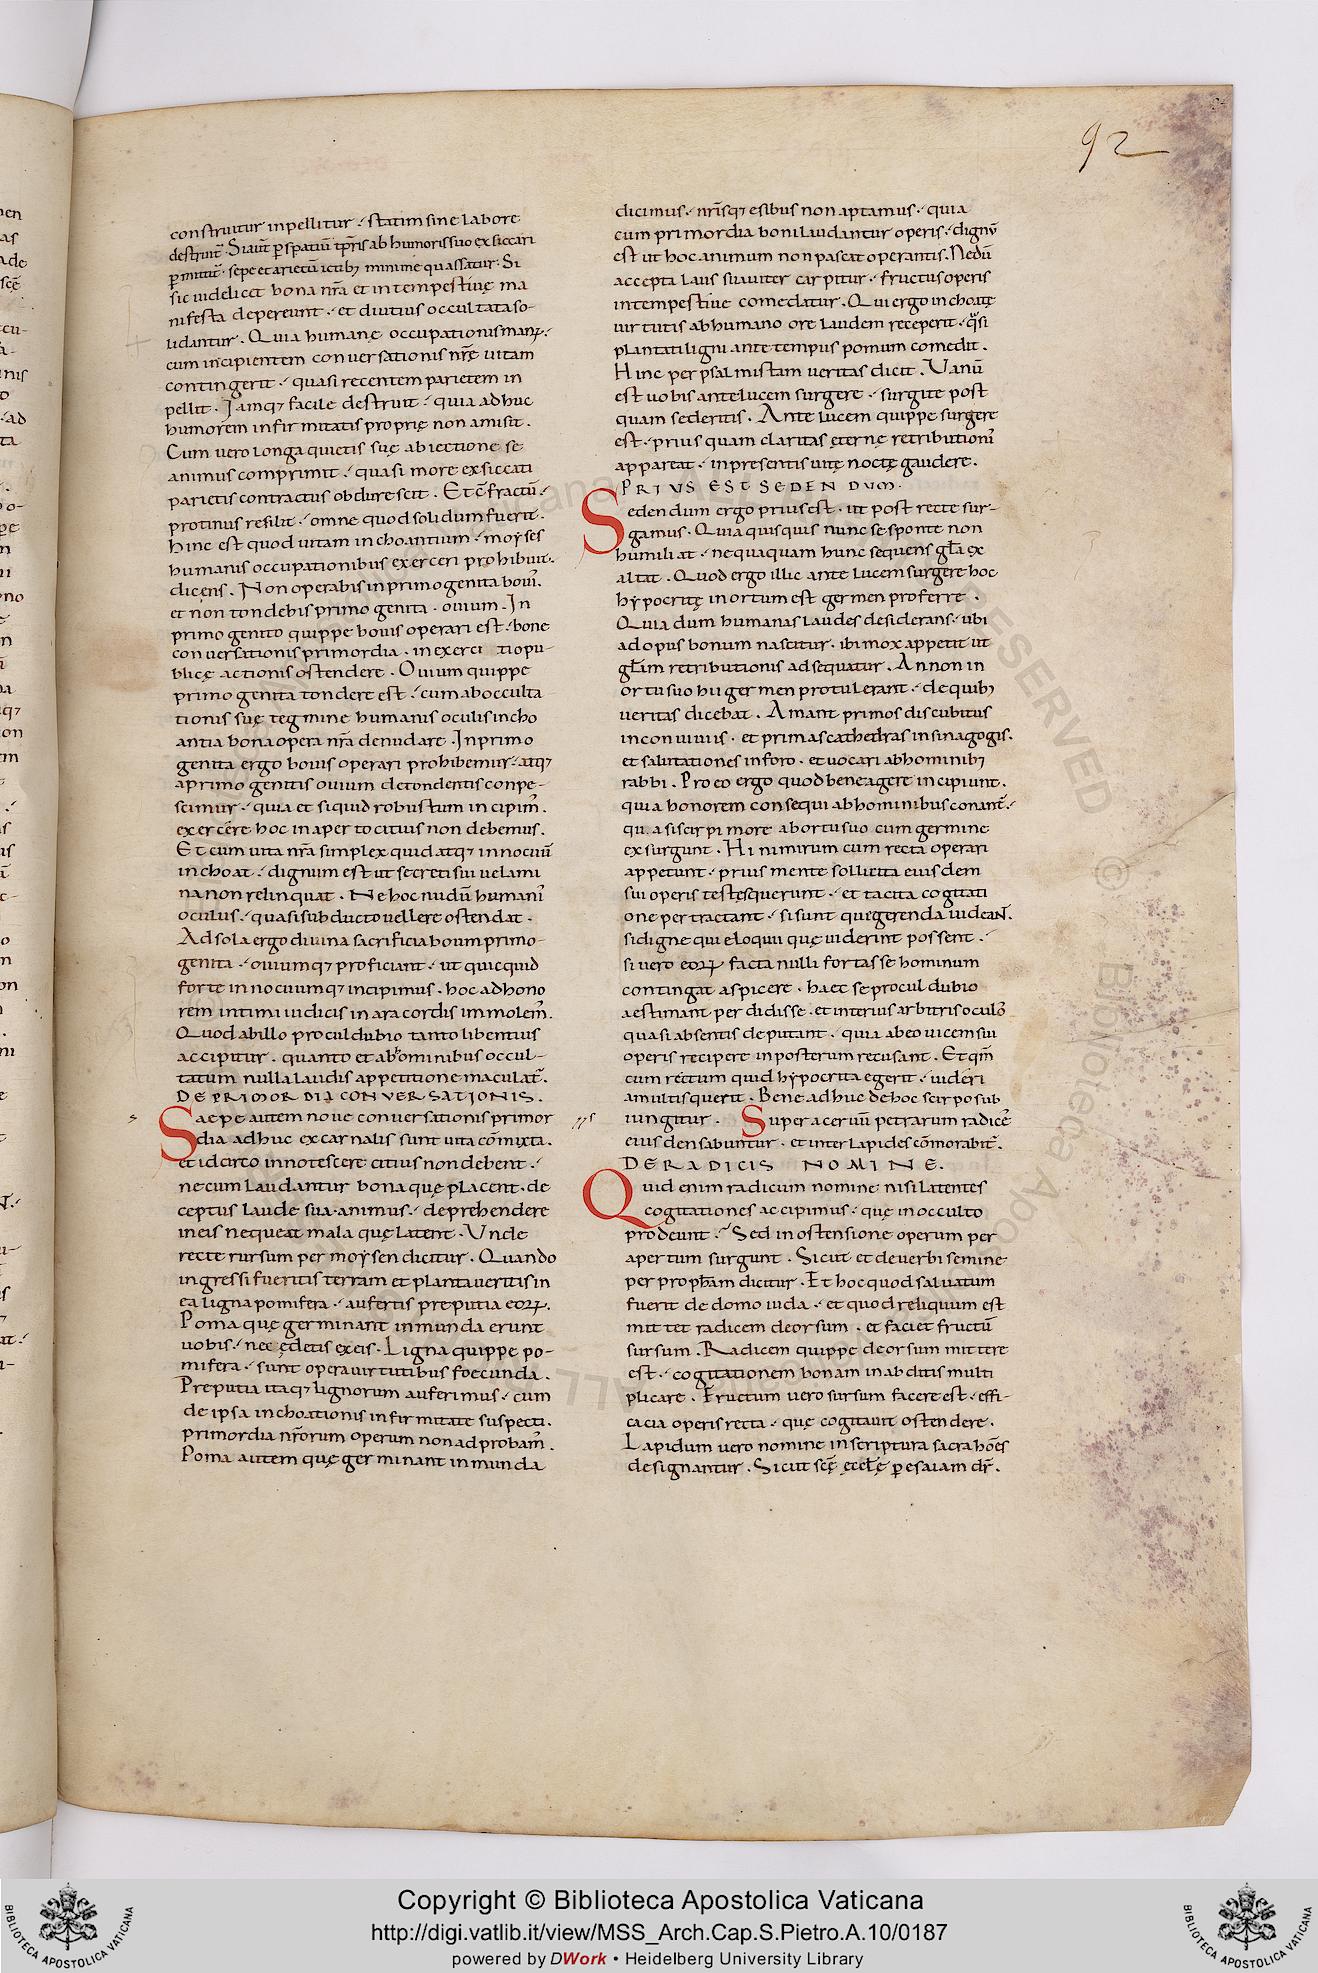 92
construitur inpellitur · statim sine labore
destruit̄. Si aut̄ p̄ spatiū tp̄ris ab humoris suo exsiccari
p̄mittit̄ · sepe et arietū ictibꝫ minime quassatur · Si
sic uidelicet bona nr̄a et intempestiuę ma
nifesta depereunt · et diutius occultata so-
lidantur · Quia humanę occupationis manꝰ ·
cum incipientem conuersationis nr̄ę uitam
contingerit · quasi recentem parietem in
pellit · Iamqꝫ facile destruit · quia adhuc
humorem infirmitatis proprię non amisit ·
Cum uero longa quietis suę abiectione se
animus comprimit · quasi more exsiccati
parietis contractus obdurescit · Et c̄ fractū ·
protinus resilit · omne quod solidum fuerit ·
Hinc est quod uitam inchoantium · moẏses
humanis occupationibus exerceri prohibuit ·
dicens · Non operabis in primogenita boui ·
et non tondebis primogenita · ouium · In
primogenito quippe bouis operari est · bone
conuersationis primordia · in exerci tio pu-
blicę actionis ostendere · Ouium quippe
primogenita tondere est · cum ab occulta
tionis suę tegmine humanis oculis incho
antia bona opera nr̄a denudare · In primo
genita ergo bouis operari prohibemur · atqꝫ
a primogenitis ouium detondentis conpe-
scimur · quia et si quid robustum incipim̄ ·
exercēre hoc in aperto citius non debemus ·
Et cum uita nr̄a simplex quid atqꝫ innocuū
inchoat · dignum est ut secreti sui uelami
na non relinquat · Ne hoc nudū humanꝰ
oculus · quasi subducto uellere ostendat ·
Ad sola ergo diuina sacrificia boum primo-
genita · ouiumqꝫ proficiant · ut quicquid
forte innocuumqꝫ incipimus · hoc ad hono
rem intimi iudicis in ara cordis immolem̄ ·
Quod ab illo proculdubio tanto libentius
accipitur · quanto et ab hominibus occul-
tatum nulla laudis appetitione maculat̄ ·
DE PRIMORDIA CONVERSATIONIS ·
s Saepe autem noue conuersationis primor
dia adhuc ex carnalis sunt uita cōmixta ·
et idcirco innotescere citius non debent ·
ne cum laudantur bona quę placent · de
ceptus laude sua · animus · deprehendere
in eis nequeat mala quę latent · Vnde
recte rursum per moẏsen dicitur · Quando
ingressi fueritis terram et plantaueritis in
ea ligna pomifera · aufertis preputia eoꝝ ·
Poma quę germinant inmunda erunt
uobis · nec ędetis ex eis · Ligna quippe po-
mifera · sunt opera uirtutibus foecunda ·
Preputia itaqꝫ lignorum auferimus · cum
de ipsa inchoationis infirmitate suspecti ·
primordia nr̄orum operum non adprobam̄ ·
Poma autem quę germinant inmunda
dicimus · nr̄isqꝫ esibus non aptamus · quia
cum primordia boni laudantur operis · dignū
est ut hoc animum non pascat operantis · Nedū
accepta laus suauiter carpitur · fructus operis
intempestiue comedatur · Qui ergo inchoatę
uirtutis ab humano ore laudem receperit · qᷓsi
plantati ligni ante tempus pomum comedit ·
Hinc per psalmistam ueritas dicit · Vanū
est uobis ante lucem surgere · surgite post
quam sederitis · Ante lucem quippe surgere
est · prius quam claritas ęternę retributionis
appareat · in presentis uitę noctę gaudere ·
PRIVS EST SEDENDVM ·
Sedendum ergo prius est · ut post recte sur-
gamus · Quia quisquis nunc se sponte non
humiliat · nequaquam hunc sequens gła ex
altat · Quod ergo illic ante lucem surgere hoc
hẏpocritę in ortum est germen proferre ·
Quia dum humanas laudes desiderans · ubi
ad opus bonum nascitur · ibi mox appetit ut
głam retributionis adsequatur · An non in
ortu suo hii germen protulerant · de quibꝫ
ueritas dicebat · Amant primos discubitus
in conuiuiis · et primas cathedras in sinagogis ·
et salutationes in foro · et uocari ab hominibꝫ
rabbi · Pro eo ergo quod bene agere incipiunt ·
quia honorem consequi ab hominibus conant̄ ·
qu a si scirpi more ab ortu suo cum germine
exsurgunt · Hi nimirum cum recta operari
appetunt · prius mente sollicita eiusdem
sui operis testęs querunt · et tacita cogitati
one pertractant · si sunt quę gerenda uideant ·
si digne qui eloqui quę uiderint possent ·
si uero eoꝝ facta nulli fortasse hominum
contingat aspicere · haec se proculdubio
aestimant perdidisse · et interius arbitris oculos
quasi absentis deputant · quia ab eo uicem sui
operis recipere in posterum recusant · Et qm̄
cum rectum quid hẏpocrita egerit · uideri
a multis querit · Bene adhuc de hoc scirpo sub
iungitur · Super aceruū petrarum radicē
eius densabuntur · et inter lapides cōmorabit̄ ·
DE RADICIS NOMINE ·
Quid enim radicum nomine nisi latentes
cogitationes accipimus · quę in occulto
prodeunt · Sed in ostensione operum per
apertum surgunt · Sicut et de uerbi semine
per propħam dicitur · Et hoc quod saluatum
fuerit de domo iuda · et quod reliquum est
mittet radicem deorsum · et faciet fructū
sursum · Radicem quippe deorsum mittere
est · cogitationem bonam in abditis multi
plicare · Fructum uero sursum facere est · effi-
cacia operis recta · quę cogitauit ostendere ·
Lapidum uero nomine in scriptura sacra hōēs
designantur · Sicut scę̄ ęccl̄ę p̄ esaiam dr̄ ·
Copyright © Biblioteca Apostolica Vaticana
http://digi.vatlib.it/view/MSS_Arch.Cap.S.Pietro.A.10/0187
powered by DWork • Heidelberg University Library
BIBLIOTECA APOSTOLICA VATICANA
BIBLIOTECA APOSTOLICA VATICANA